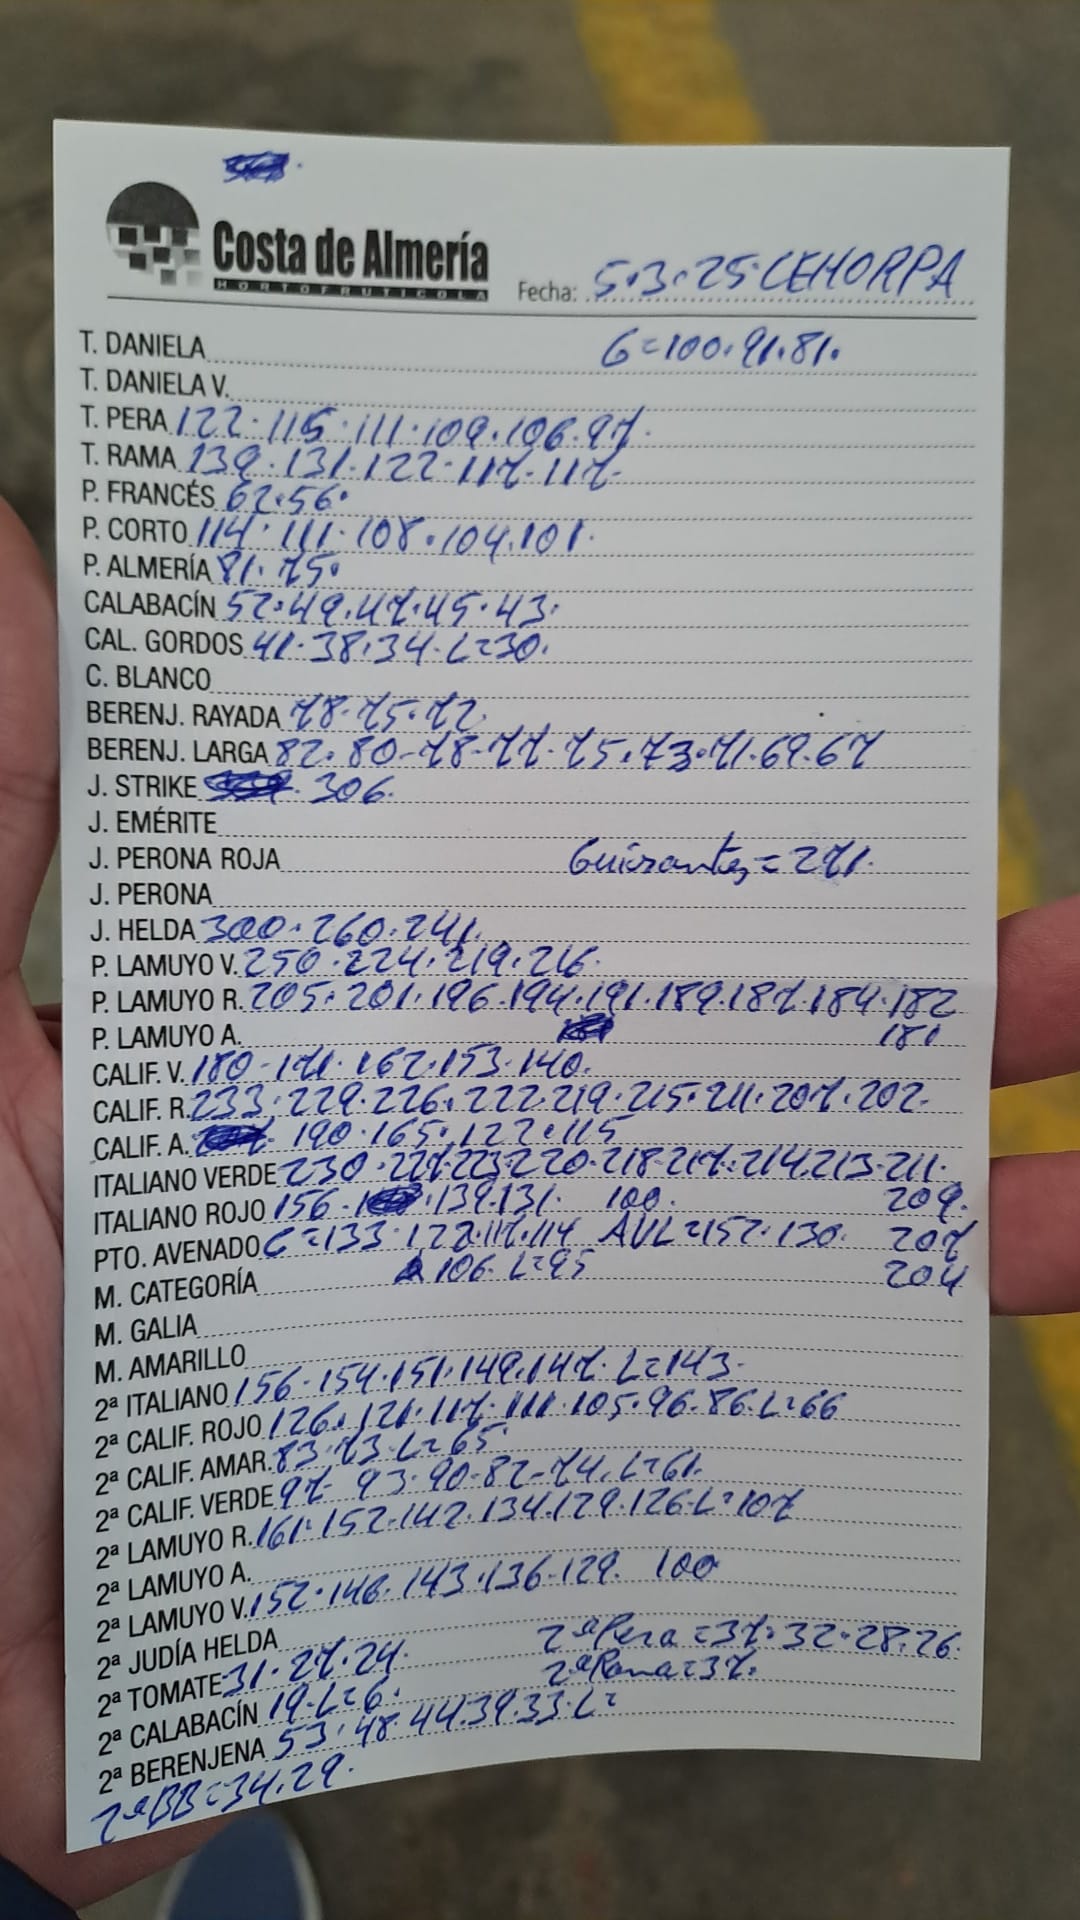 Costa de Almería
HORTOFRUTICOLA
Fecha: 5.3.25.CEHORPA
T. DANIELA G=100.91.81.
T. DANIELA V.
T. PERA 122.115.111.109.106.97.
T. RAMA 139.131.122.117.117.
P. FRANCÉS 62.56.
P. CORTO 114.111.108.104.101.
P. ALMERÍA 81.75.
CALABACÍN 52.49.47.45.43.
CAL. GORDOS 41.38.34.L=30.
C. BLANCO
BERENJ. RAYADA 78.75.72
BERENJ. LARGA 82.80-78-77-75.73.71.69.67
J. STRIKE 306.
J. EMÉRITE
J. PERONA ROJA Guisantes=271.
J. PERONA
J. HELDA 300.260.241.
P. LAMUYO V. 250.224.219.216.
P. LAMUYO R. 205.201.196.194.191.189.187.184.182
P. LAMUYO A. 181
CALIF. V. 180-171.162.153.140.
CALIF. R. 233.229.226.222.219.215.211.207.202.
CALIF. A. 190.165.122.115
ITALIANO VERDE 230.227.223.220.218.217.214.213.211.
ITALIANO ROJO 156. 139.131. 100. 209.
PTO. AVENADO C=133.122.117.114 AVL=152.130. 207
M. CATEGORÍA 106.L=95 204
M. GALIA
M. AMARILLO
2ª ITALIANO 156.154.151.149.147.L=143.
2ª CALIF. ROJO 126.121.117.111.105.96.86.L=66
2ª CALIF. AMAR. 83.73.L=65.
2ª CALIF. VERDE 97.93.90.82-74.L=61.
2ª LAMUYO R. 161.152.142.134.129.126.L=107
2ª LAMUYO A.
2ª LAMUYO V. 152.146.143.136.129. 100
2ª JUDÍA HELDA 2ªPera=37.32.28.26.
2ª TOMATE 31.27.24. 2ªRama=37.
2ª CALABACÍN 19.L=6.
2ª BERENJENA 53.48.44.39.33.L=
2ªBB=34.29.